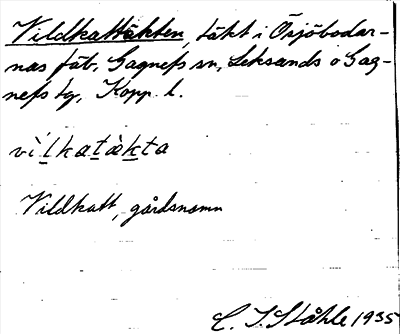 Vildkattäkten, täkt i Ösjöbodar-
nas fäb., Gagnefs sn, Leksands o Gag-
nefs tg, Kopp. l.
vìlkatàkta
Vildkatt, gårdsnamn
C. I. Ståhle 1935